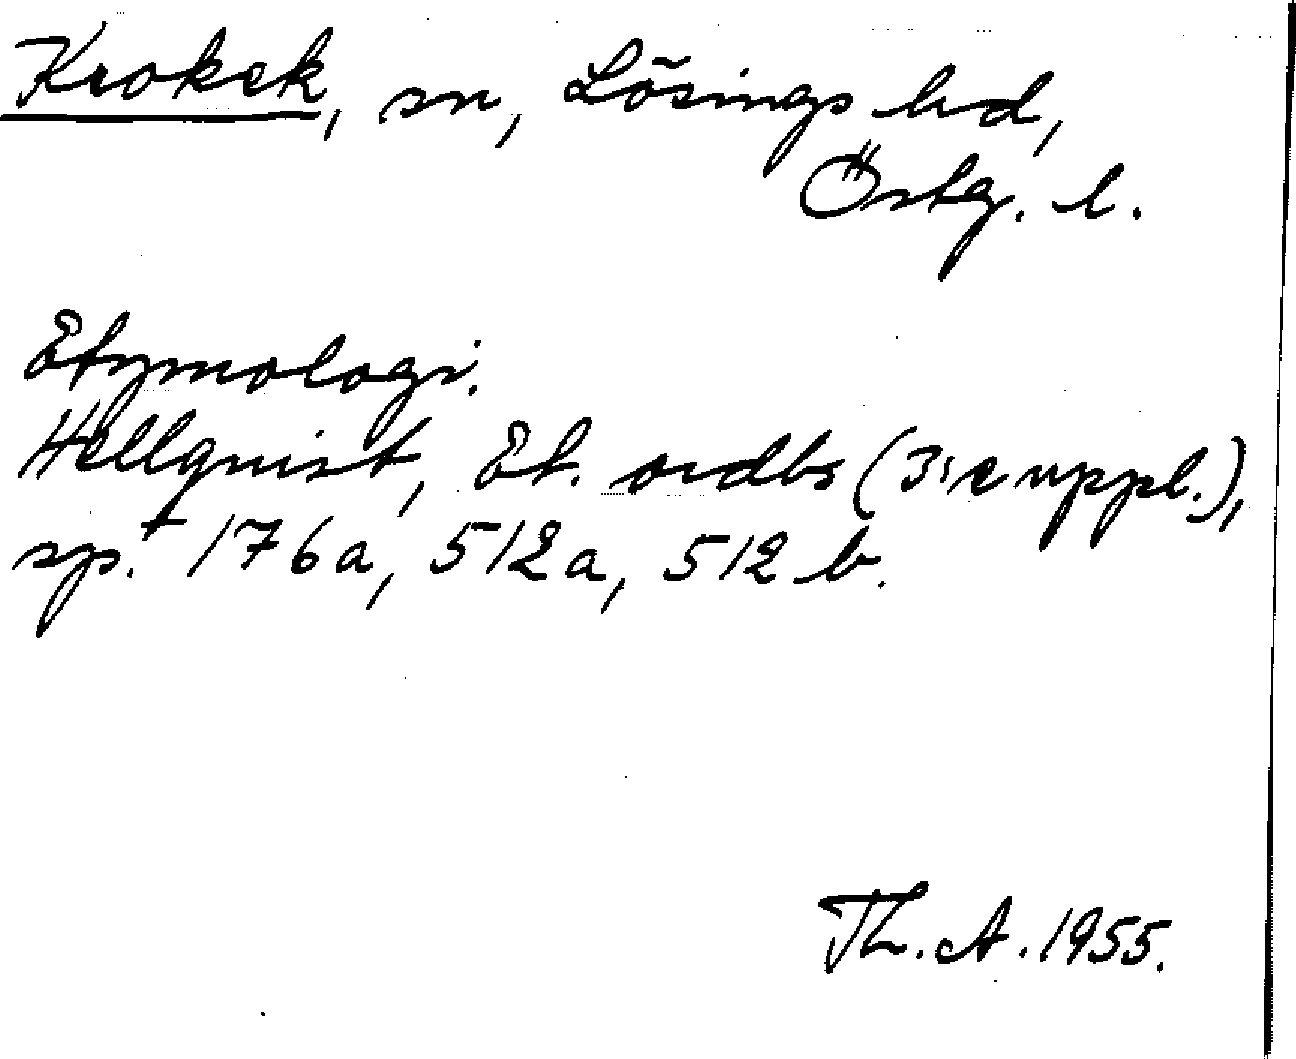 Krokek, sn, Lösings hd,
Östg. l.
Etymologi.
Hellquist, Et. ordb (3:e uppl.),
sp. 176a, 512a, 512 b.
Th. A. 1955.